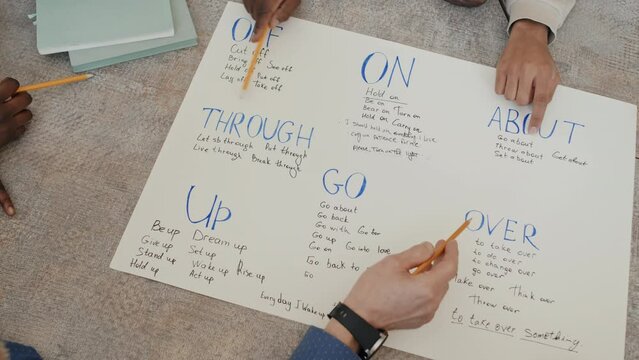 OFF
Cut off
Bring off See off
Hold off Put off
Lay off Take off
ON
Hold on
Be on
Bear on Turn on
Hold on Carry on
I should hold on
please, Turn on the light
ABOUT
Go about
Threw about Get about
Set about
THROUGH
Let sb through Put through
Live through Break through
GO
Go about
Go back
Go with Go for
Go up Go into love
Go on
Go back to
Go
UP
Be up Dream up
Give up Set up
Stand up Wake up Rise up
Hold up Act up
Every day I Wake up
OVER
to take over
to do over
to change over
go over
Take over Think over
Threw over
to take over something